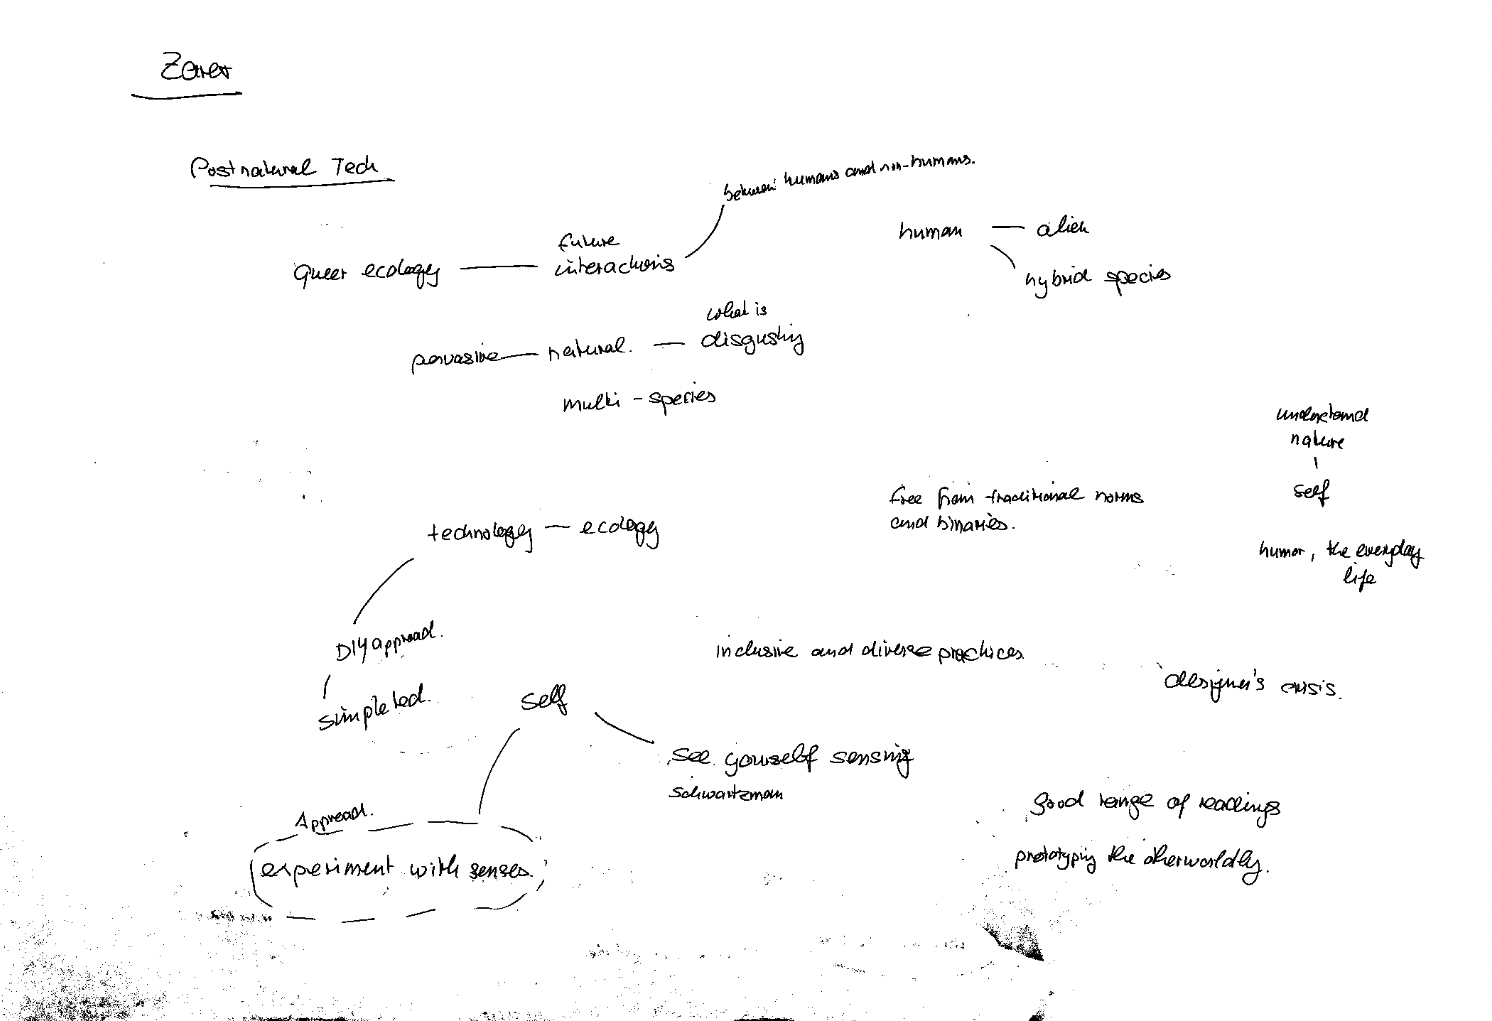 Postnatural Tech
between humans and non-humans.
future
human — alien
queer ecology — interactions
hybrid species
what is
pervasive — natural. — disgusting
multi-species
understand
nature
self
free from traditional norms
and binaries.
technology — ecology
humor, the everyday
life
DIY approach.
inclusive and diverse practices
designer's crisis.
simple tech.
self
see yourself sensing
Schwartzman
good range of readings
Approach.
prototyping the otherworldly.
experiment with senses.